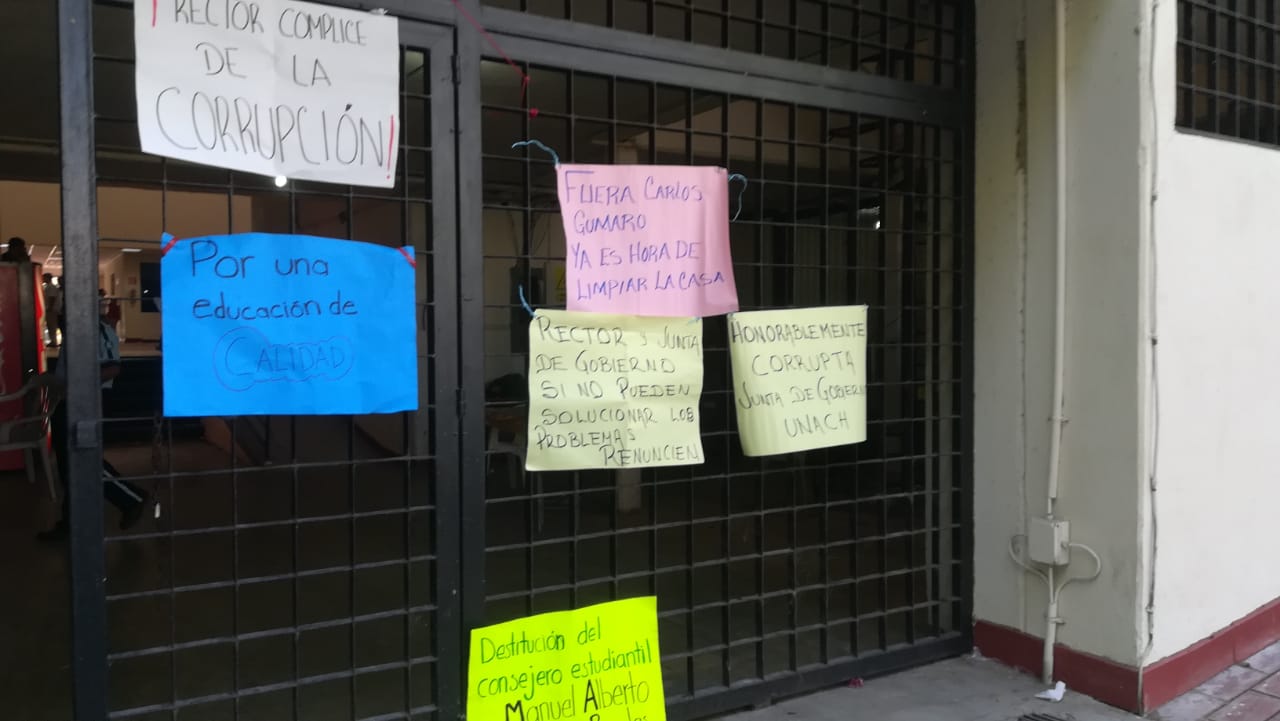 ¡RECTOR COMPLICE
DE LA
CORRUPCIÓN!
Por una
educación de
CALIDAD
FUERA CARLOS
GUMARO
YA ES HORA DE
LIMPIAR LA CASA
RECTOR Y JUNTA
DE GOBIERNO
SI NO PUEDEN
SOLUCIONAR LOS
PROBLEMAS
RENUNCIEN
HONORABLEMENTE
CORRUPTA
JUNTA DE GOBIER
UNACH
Destitución del
consejero estudiantil
Manuel Alberto